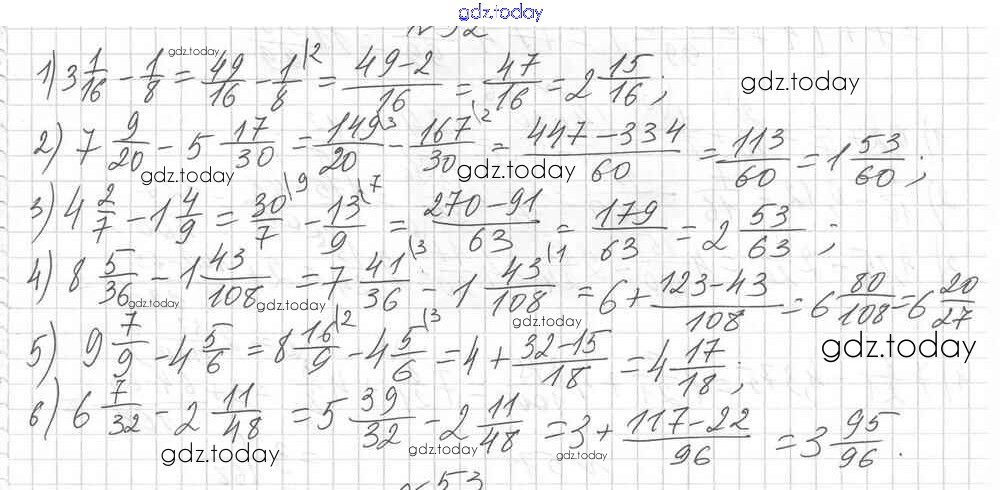 gdz.today
№ 52
1) 3 1/16 - 1/8 = 49/16 - 1/8 |2 = (49-2)/16 = 47/16 = 2 15/16;
2) 7 9/20 - 5 17/30 = 149/20 |3 - 167/30 |2 = (447-334)/60 = 113/60 = 1 53/60;
3) 4 2/7 - 1 4/9 = 30/7 |9 - 13/9 |7 = (270-91)/63 = 179/63 = 2 53/63;
4) 8 5/36 - 1 43/108 = 7 41/36 |3 - 1 43/108 |1 = 6 + (123-43)/108 = 6 80/108 = 6 20/27
5) 9 7/9 - 4 5/6 = 8 16/9 |2 - 4 5/6 |3 = 4 + (32-15)/18 = 4 17/18;
6) 6 7/32 - 2 11/48 = 5 39/32 - 2 11/48 = 3 + (117-22)/96 = 3 95/96.
№ 53
gdz.today
gdz.today
gdz.today
gdz.today
gdz.today
gdz.today
gdz.today
gdz.today
gdz.today
gdz.today
gdz.today